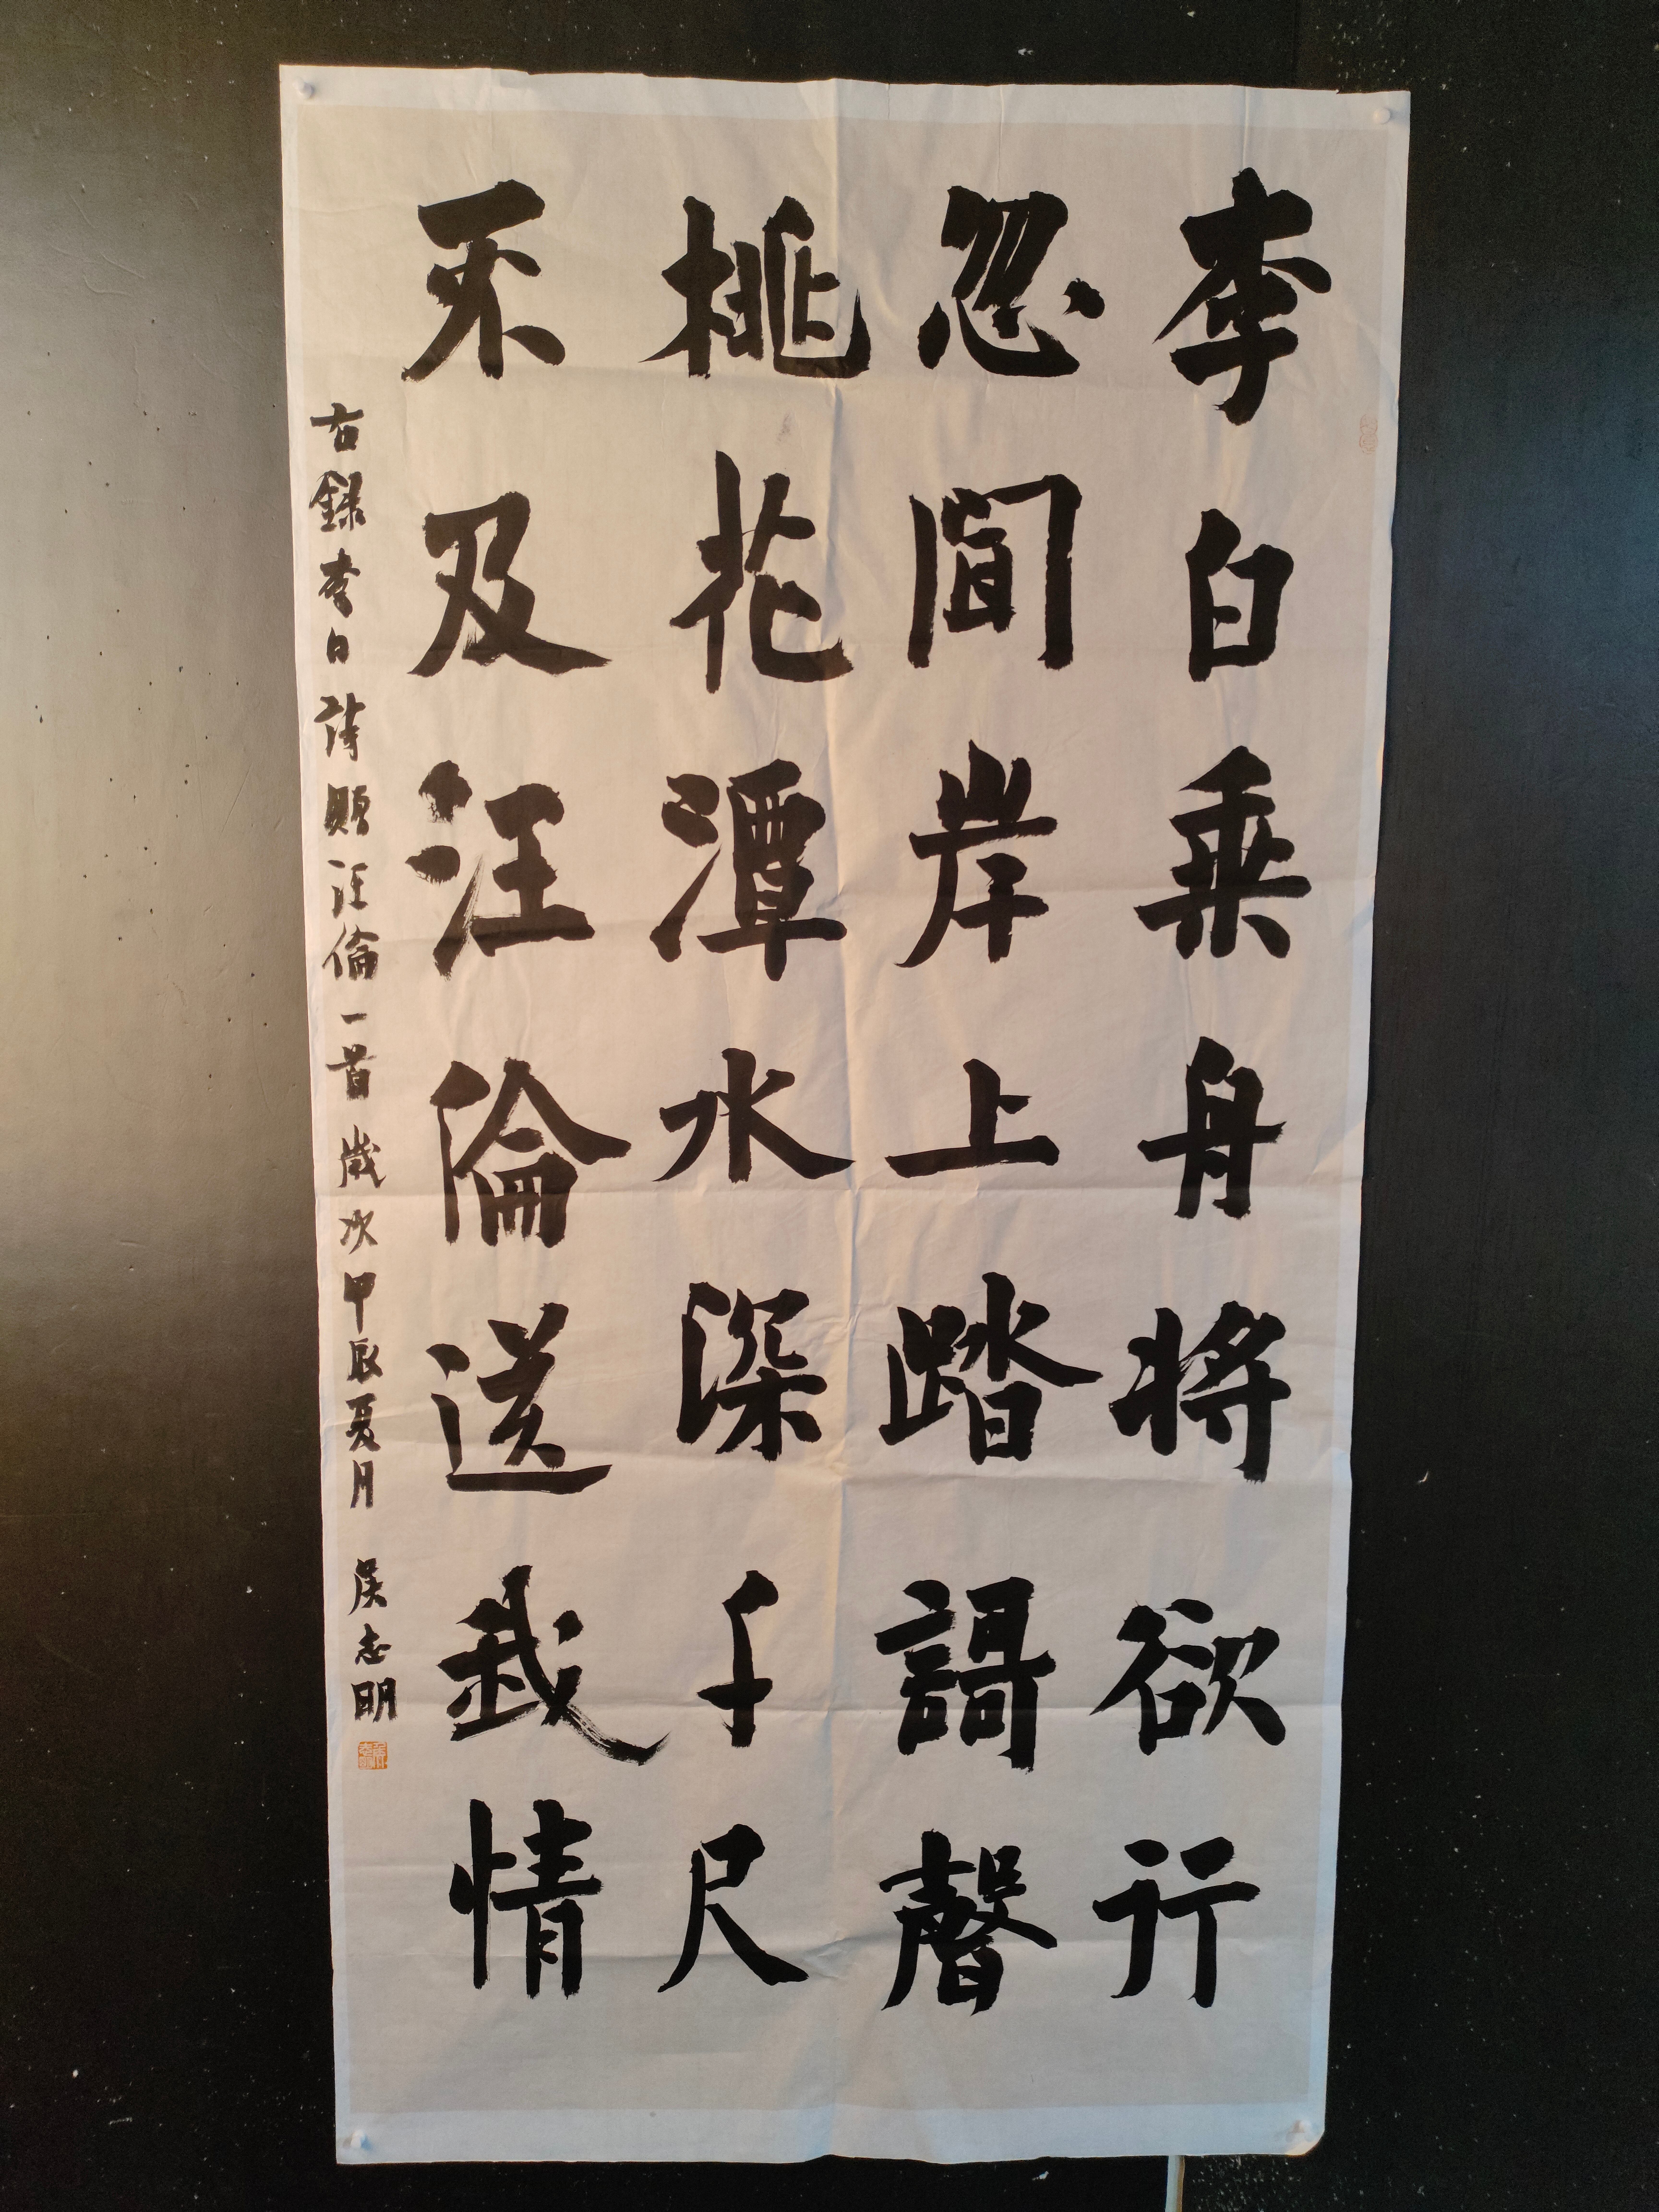 李白乘舟將欲行
忽聞岸上踏謌聲
桃花潭水深千尺
不及汪倫送我情
右録李白詩贈汪倫一首 歲次甲辰夏月 侯志明